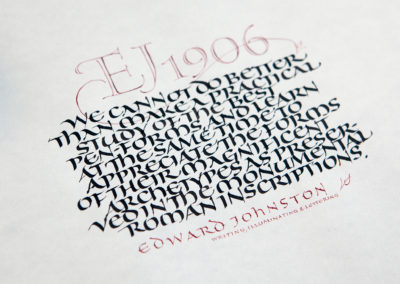 EJ 1906
WE CANNOT DO BETTER
THAN MAKE A PRACTICAL
STUDY OF THE BEST
PEN-FORMS AND LEARN
AT THE SAME TIME TO
APPRECIATE THE FORMS
OF THEIR MAGNIFICENT
ARCHETYPES AS PRESER-
VED IN THE MONUMENTAL
ROMAN INSCRIPTIONS.
EDWARD JOHNSTON
WRITING, ILLUMINATING & LETTERING